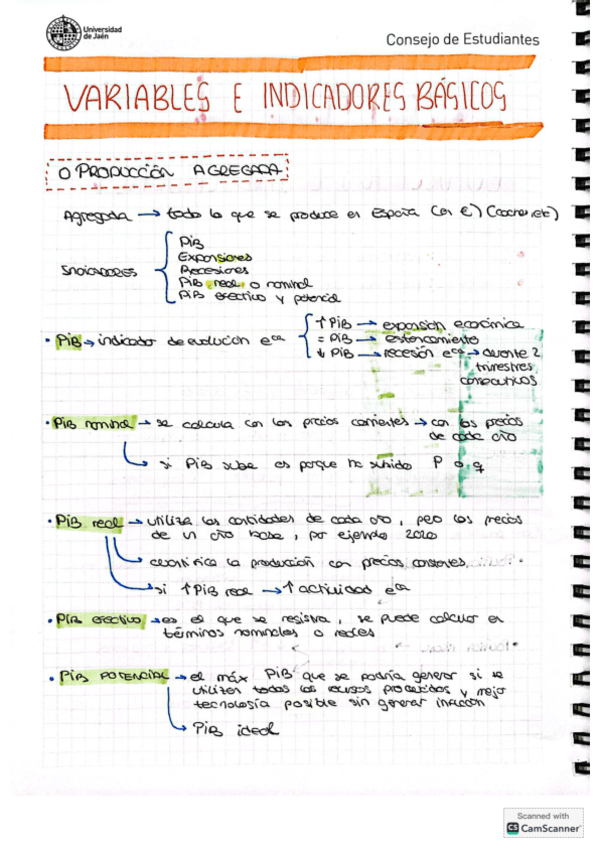 Universidad
de Jaén
Consejo de Estudiantes
VARIABLES E INDICADORES BÁSICOS
O PRODUCCIÓN AGREGADA
Agregada → todo lo que se produce en España (en €) (coches, etc)
INDICADORES
PIB
Expansiones
Recesiones
PIB real o nominal
PIB efectivo y potencial
• PIB → indicador de evolución eca
↑ PIB → expansión económica
= PIB → estancamiento
↓ PIB → recesión eca → durante 2
trimestres
consecutivos
• PIB nominal → se calcula con los precios corrientes → con los precios
de cada año
si PIB sube es porque ha subido P o q
• PIB real → utiliza las cantidades de cada año, pero los precios
de un año base, por ejemplo 2020
cuantifica la producción con precios constantes
si ↑ PIB real → ↑ actividad eca
• PIB efectivo → es el que se registra, se puede calcular en
términos nominales o reales
• PIB POTENCIAL → el máx PIB que se podría generar si se
utilizan todos los recursos productivos y mejor
tecnología posible sin generar inflación
PIB ideal
Scanned with
CS CamScanner